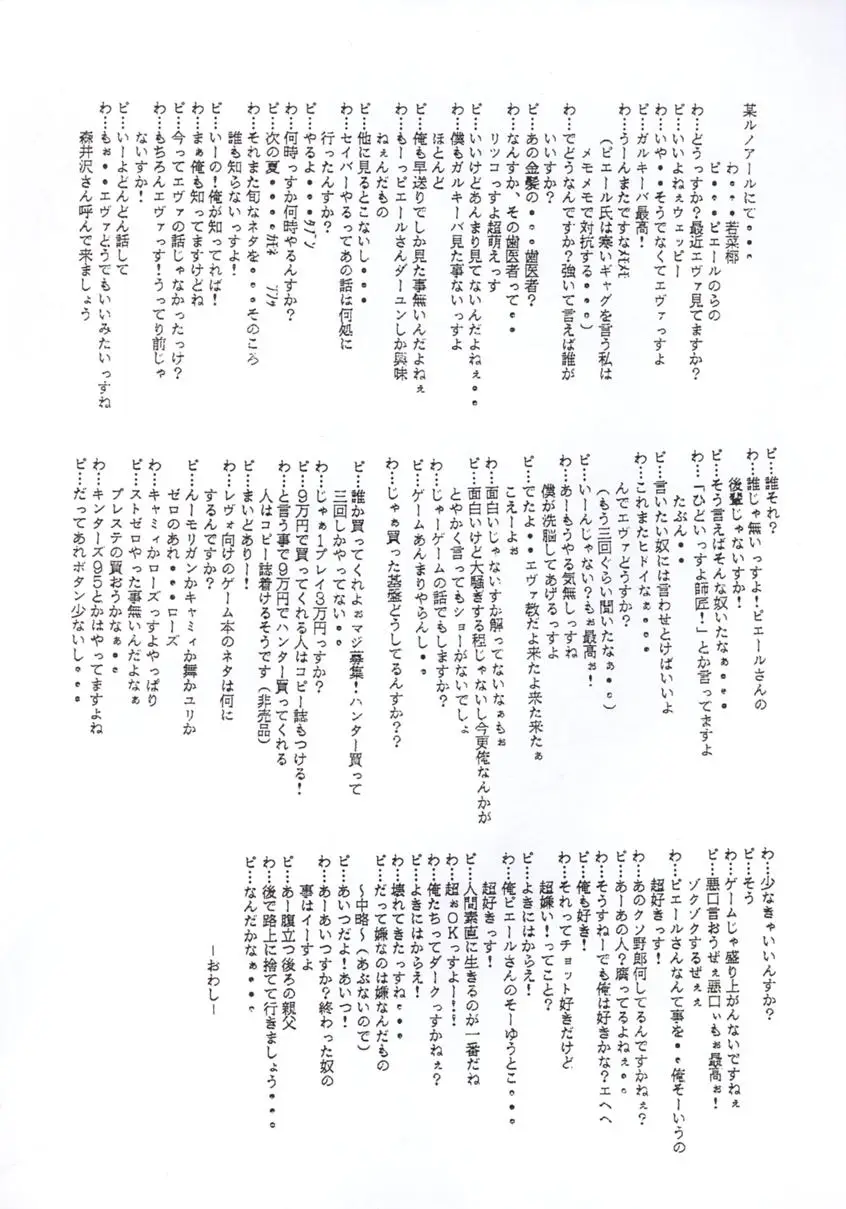 某ルノアールにて・・・
わ・・・若菜椰
ピ・・・ピエールのらの
わ…どうっすか?最近エヴァ見てますか?
ピ…いいよねぇウェッピー
わ…いや・・そうでなくてエヴァっすよ
ピ…ガルキーバ最高!
わ…うーんまたですなメモメモ
(ピエール氏は寒いギャグを言う私は
メモメモで対抗する・・・)
わ…でどうなんですか?強いて言えば誰が
いいすか?
ピ…あの金髪の・・・歯医者?
わ…なんすか、その歯医者って・・
リツコっすよ超萌えっす
ピ…いいけどあんまり見てないんだよねぇ・・
わ…僕もガルキーバ見た事ないっすよ
ほとんど
ピ…俺も早送りでしか見た事無いんだよねぇ
わ…もーっピエールさんダーユンしか興味
ねぇんだもの
ピ…他に見るとこないし・・・
わ…セイバーやるってあの話は何処に
行ったんすか?
ピ…やるよ・・・タブン
わ…何時っすか何時やるんすか?
ピ…次の夏・・・・
わ…それまた旬なネタを・・・そのころ
誰も知らないっすよ!
ピ…いーの!俺が知ってれば!
わ…まぁ俺も知ってますけどね
ピ…今ってエヴァの話じゃなかったっけ?
わ…もちろんエヴァっす!うってり前じゃ
ないすか!
ピ…いーよどんどん話して
わ…もぉ・・エヴァどうでもいいみたいっすね
森井沢さん呼んで来ましょう
ピ…誰それ?
わ…誰じゃ無いっすよ!ピエールさんの
後輩じゃないすか!
ピ…そう言えばそんな奴いたなぁ・・・
わ…「ひどいっすよ師匠!」とか言ってますよ
たぶん・・
ピ…言いたい奴には言わせとけばいいよ
わ…これまたヒドイなぁ・・・
んでエヴァどうすか?
(もう三回ぐらい聞いたなぁ・・)
ピ…いーんじゃない?もぉ最高ぉ!
わ…あーもうやる気無しっすね
僕が洗脳してあげるっすよ
ピ…でたよ・・エヴァ教だよ来たよ来た来たぁ
こえーよぉ
わ…面白いじゃないすか解ってないなぁもぉ
ピ…面白いけど大騒ぎする程じゃないし今更俺なんかが
とやかく言ってもショーがないでしょ
わ…じゃーゲームの話でもしますか?
ピ…ゲームあんまりやらんし・・
わ…じゃぁ買った基盤どうしてるんすか??
ピ…誰か買ってくれよぉマジ募集!ハンター買って
三回しかやってない・・
わ…じゃぁ1プレイ3万円っすか?
ピ…9万円で買ってくれる人はコピー誌もつける!
わ…と言う事で9万円でハンター買ってくれる
人はコピー誌着けるそうです(非売品)
ピ…まいどありー!!
わ…レヴォ向けのゲーム本のネタは何に
するんですか?
ピ…んーモリガンかキャミィか舞かユリか
ゼロのあれ・・・ローズ
わ…キャミィかローズっすよやっぱり
ピ…ストゼロやった事無いんだよなぁ
プレステの買おうかなぁ・・
わ…キンターズ95とかはやってますよね
ピ…だってあれボタン少ないし・・・
わ…少なきゃいいんすか?
ピ…そう
わ…ゲームじゃ盛り上がんないですねぇ
ピ…悪口言おうぜぇ悪口ぃもぉ最高ぉ!
ゾクゾクするぜぇぇ
わ…ピエールさんなんて事を・・俺そーいうの
超好きっす!
わ…あのクソ野郎何してるんですかねぇ?
ピ…あーあの人?腐ってるよねぇ・・
わ…そうすねーでも俺は好きかな?エヘヘ
ピ…俺も好き!
わ…それってチョット好きだけど
超嫌い!ってこと?
ピ…よきにはからえ!
わ…俺ピエールさんのそーゆうとこ・・・
超好きっす!
ピ…人間素直に生きるのが一番だね
わ…超ぉOKっすよー!!
わ…俺たちってダークっすかねぇ?
ピ…よきにはからえ!
わ…壊れてきたっすね・・・
ピ…だって嫌なのは嫌なんだもの
~中略~(あぶないので)
ピ…あいつだよ!あいつ!
わ…あーあいつすか?終わった奴の
事はイーすよ
ピ…あー腹立つ後ろの親父
わ…後で路上に捨てて行きましょう・・・
ピ…なんだかなぁ・・・
ーおわしー